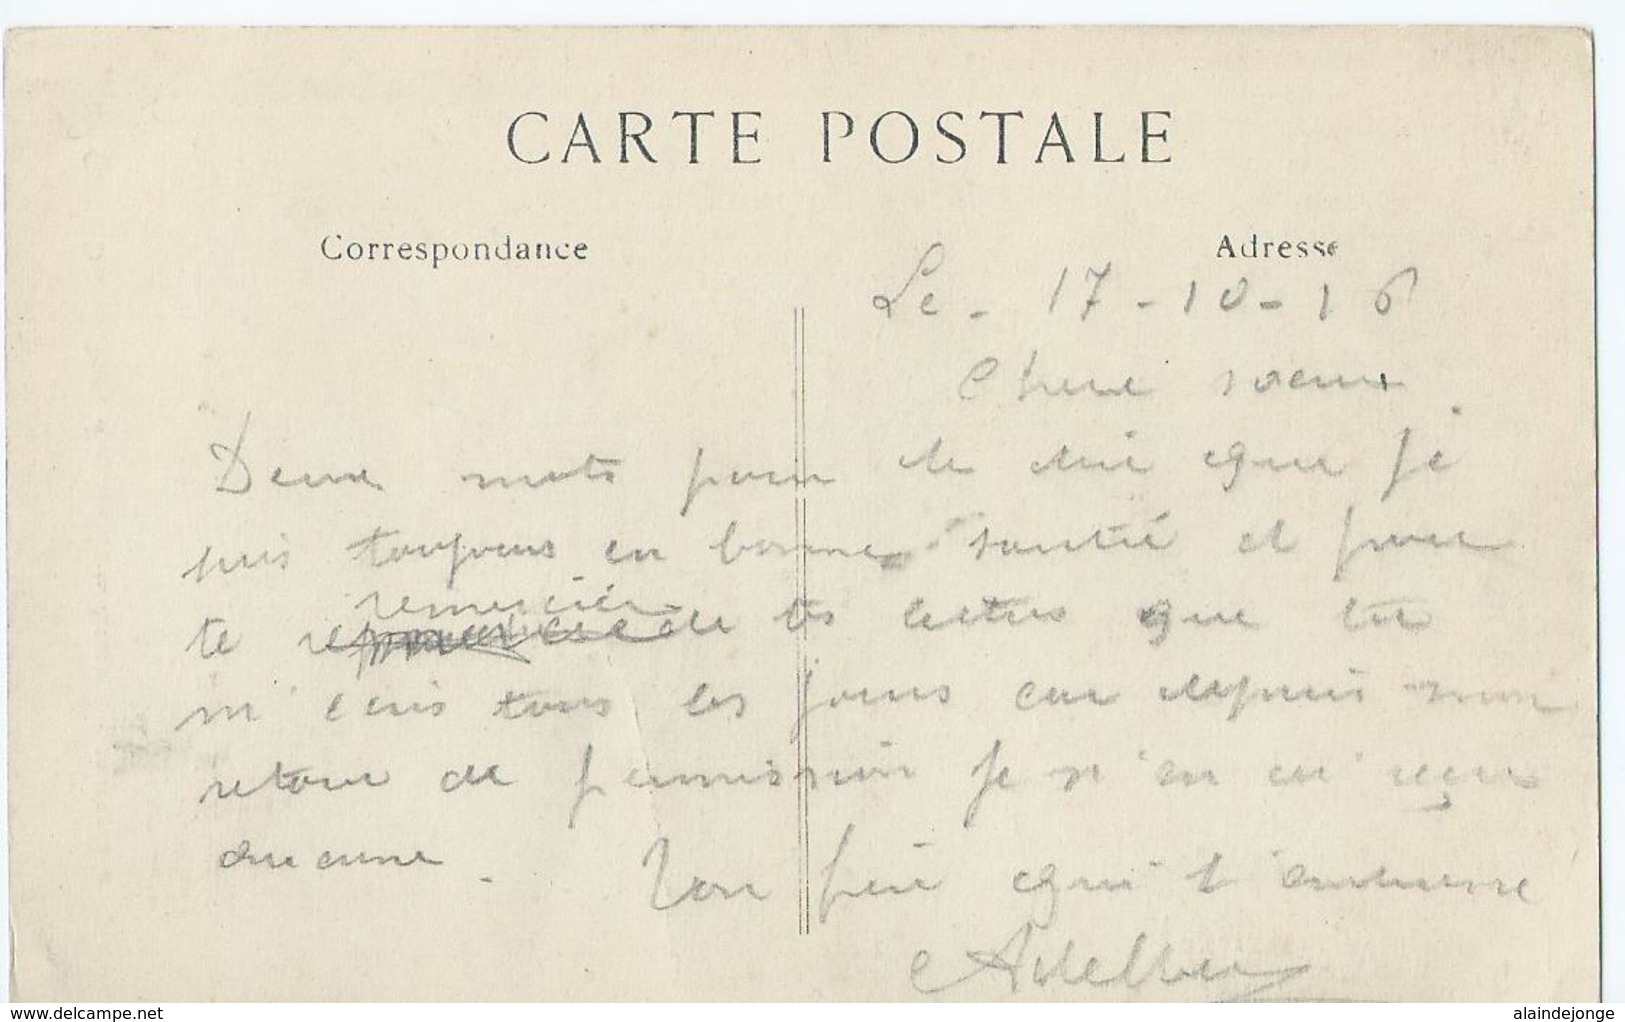 CARTE POSTALE
Correspondance
Adresse
Le - 17-10-16
Chere soeur
Deux mots pour te dire que je
suis toujours en bonne santé et pour
te remercier de tes lettres que tu
m'ecris tous les jours car depuis mon
retour de permission je n'en ai reçu
aucune. Ton frere qui t'embrasse
delcampe.net
alaindejonge